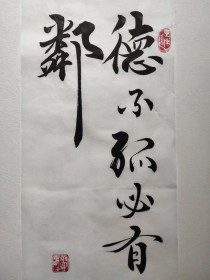 德不孤必有
鄰